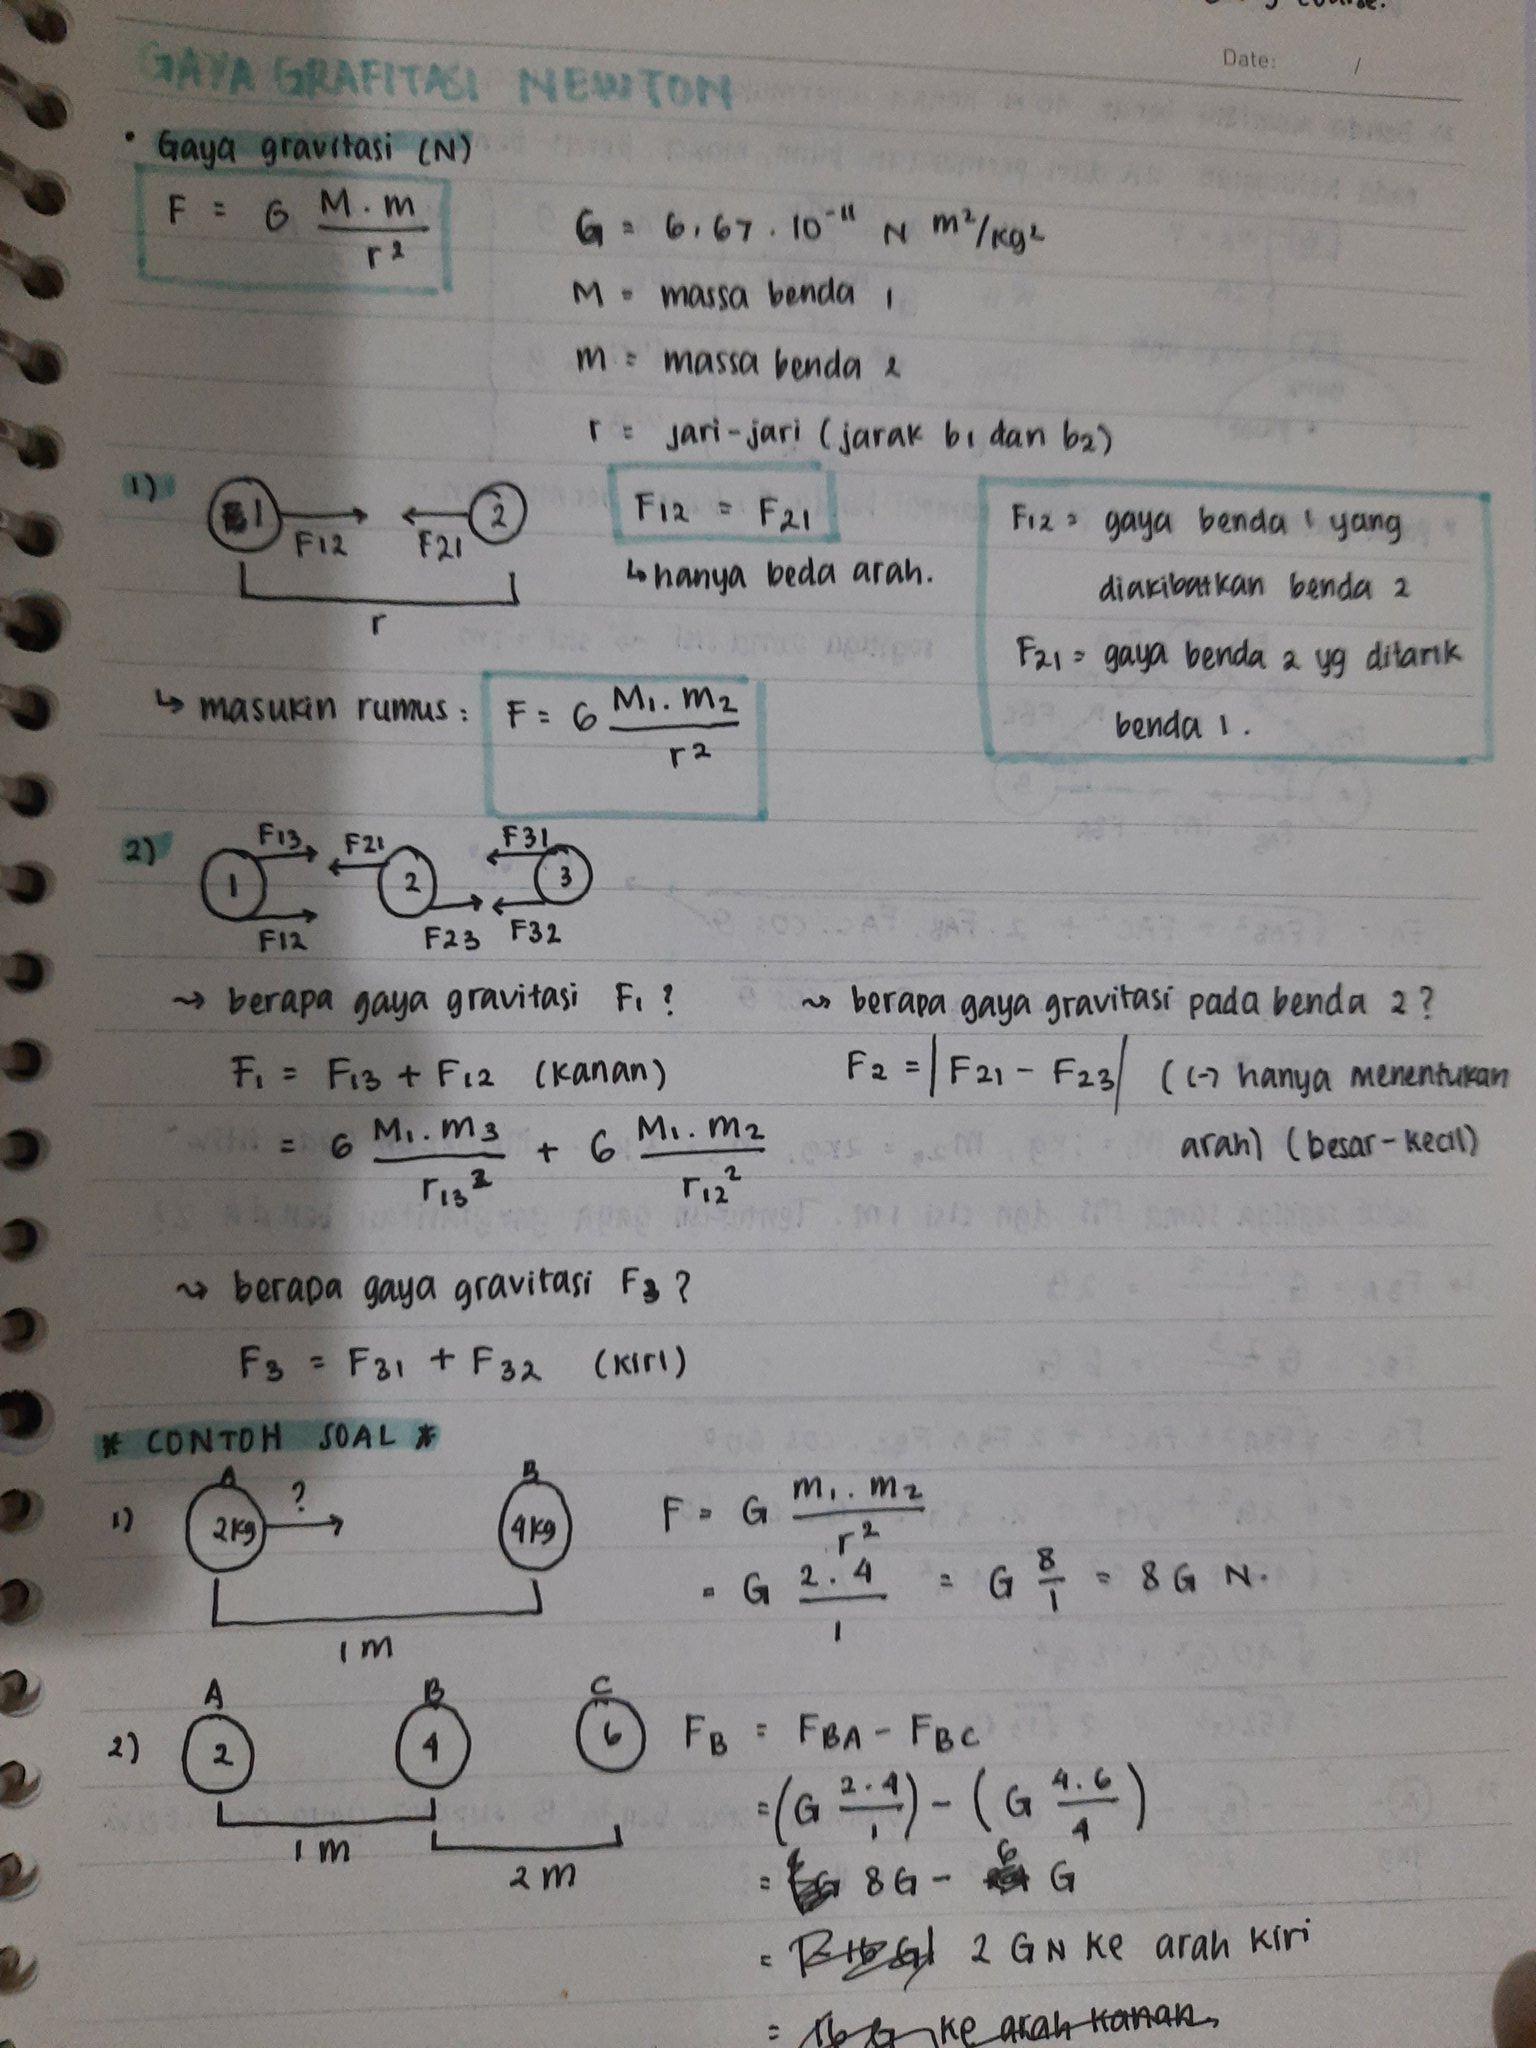 course.
Date: /
GAYA GRAFITASI NEWTON
• Gaya gravitasi (N)
F = G M . m / r²
G = 6,67 . 10⁻¹¹ N m²/kg²
M = massa benda 1
m = massa benda 2
r = jari-jari (jarak b1 dan b2)
1) 1 F12 F21 2
r
F12 = F21
↳ hanya beda arah.
F12 = gaya benda 1 yang
diakibatkan benda 2
F21 = gaya benda 2 yg ditarik
benda 1.
↳ masukin rumus : F = G M1 . m2 / r²
2) 1 F13 F12 F21 2 F23 F31 F32 3
~> berapa gaya gravitasi F1 ?
F1 = F13 + F12 (kanan)
= G M1 . m3 / r13² + G M1 . m2 / r12²
~> berapa gaya gravitasi pada benda 2 ?
F2 = | F21 - F23 | ( (-) hanya menentukan
arah) (besar - kecil)
~> berapa gaya gravitasi F3 ?
F3 = F31 + F32 (kiri)
* CONTOH SOAL *
1) A 2kg ? B 4kg
1 m
F = G m1 . m2 / r²
= G 2 . 4 / 1 = G 8 / 1 = 8 G N.
2) A 2 B 4 C 6
1 m
2 m
FB = FBA - FBC
= (G 2.4 / 1) - (G 4.6 / 4)
= 8G - 6 G
= 2 G N ke arah kiri
= 16 G ke arah kanan.